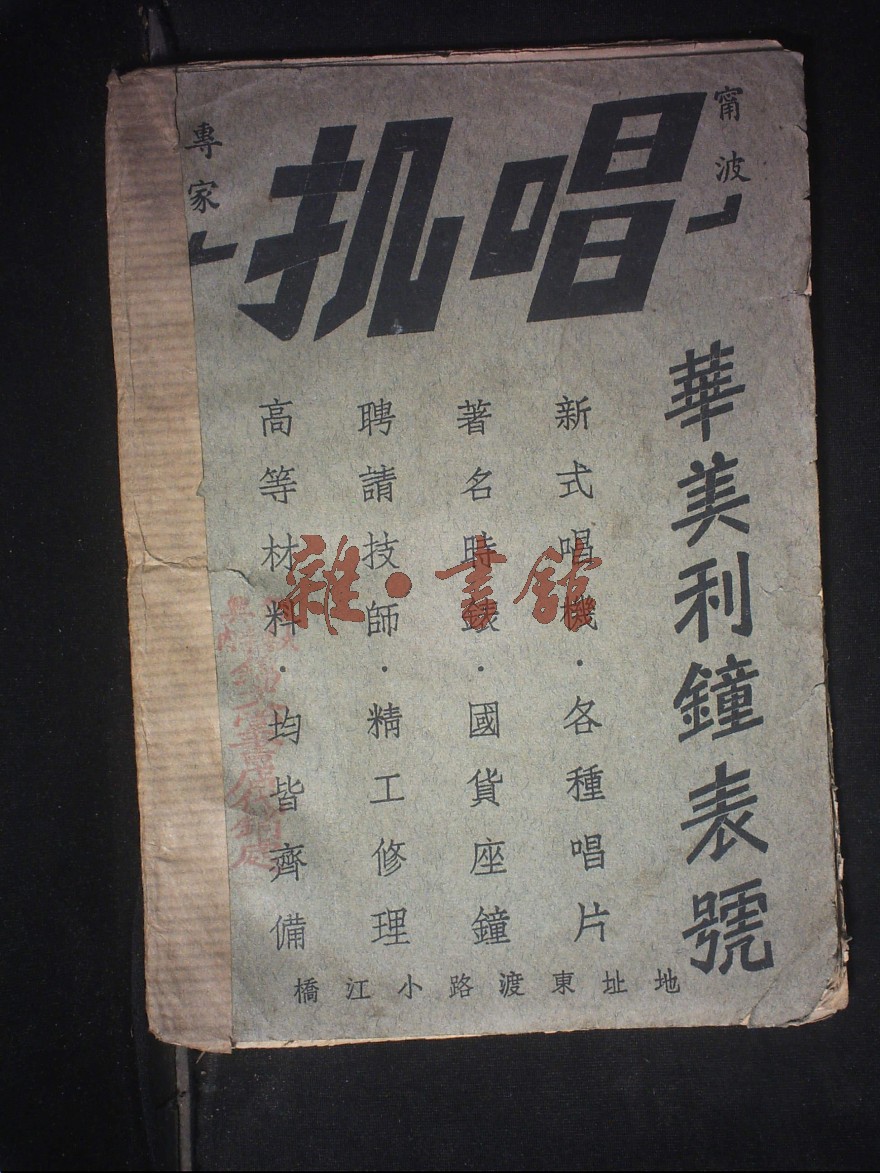 甯波
唱机
專家
華美利鐘表號
新式唱機·各種唱片
著名時錶·國貨座鐘
聘請技師·精工修理
高等材料·均皆齊備
地址東渡路小江橋
雜·書館